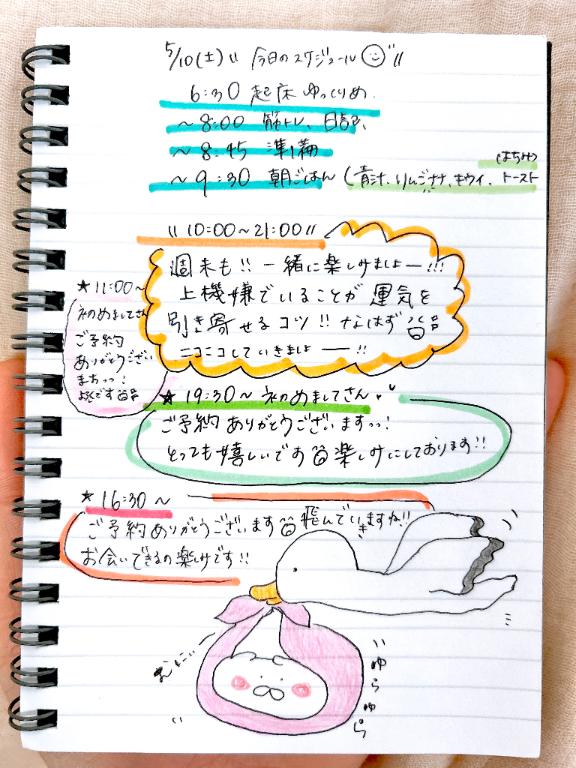 5/10(土) 〃 今日のスケジュール 〃
6:30 起床 ゆっくりめ
～8:00 筋トレ、日記
～8:45 準備
～9:30 朝ごはん (青汁、りんごバナナ、キウイ、トースト
はちみつ
〃 10:00～21:00 〃
週末も!! 一緒に楽しみましょー!!!
上機嫌でいることが 運気を
引き寄せるコツ!! なはず
ニコニコしていきましょー!!
★11:00～
初めましてさん
ご予約
ありがとうござい
まちっっ!
★ 19:30～ 初めましてさん
ご予約ありがとうございますっっ!
とっても嬉しいです 楽しみにしております!!
★ 16:30～
ご予約ありがとうございます 飛んでいきますね!!
お会いできるの楽しみです!!
ゆらゆら